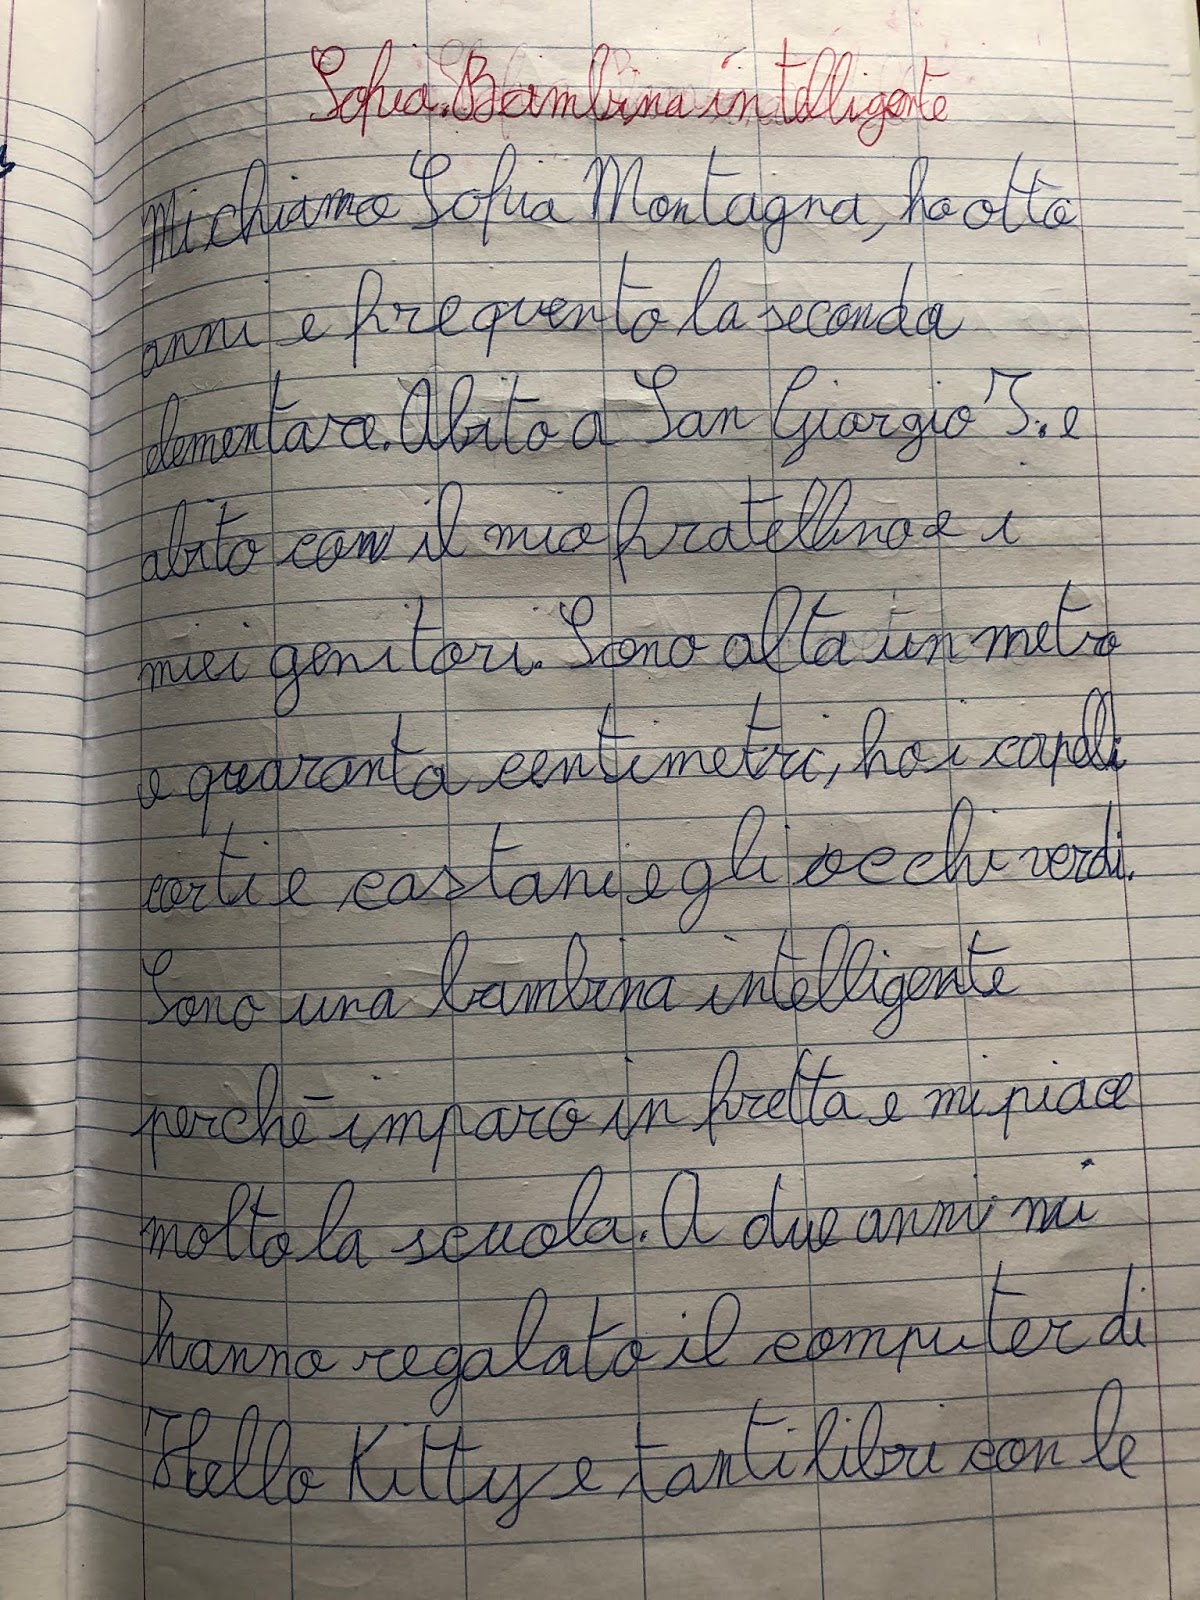 Sofia. Bambina intelligente
Mi chiamo Sofia Montagna, ho otto
anni e frequento la seconda
elementare. Abito a San Giorgio J. e
abito con il mio fratellino e i
miei genitori. Sono alta un metro
e quaranta centimetri, ho i capelli
corti e castani e gli occhi verdi.
Sono una bambina intelligente
perché imparo in fretta e mi piace
molto la scuola. A due anni mi
hanno regalato il computer di
Hello Kitty e tanti libri con le